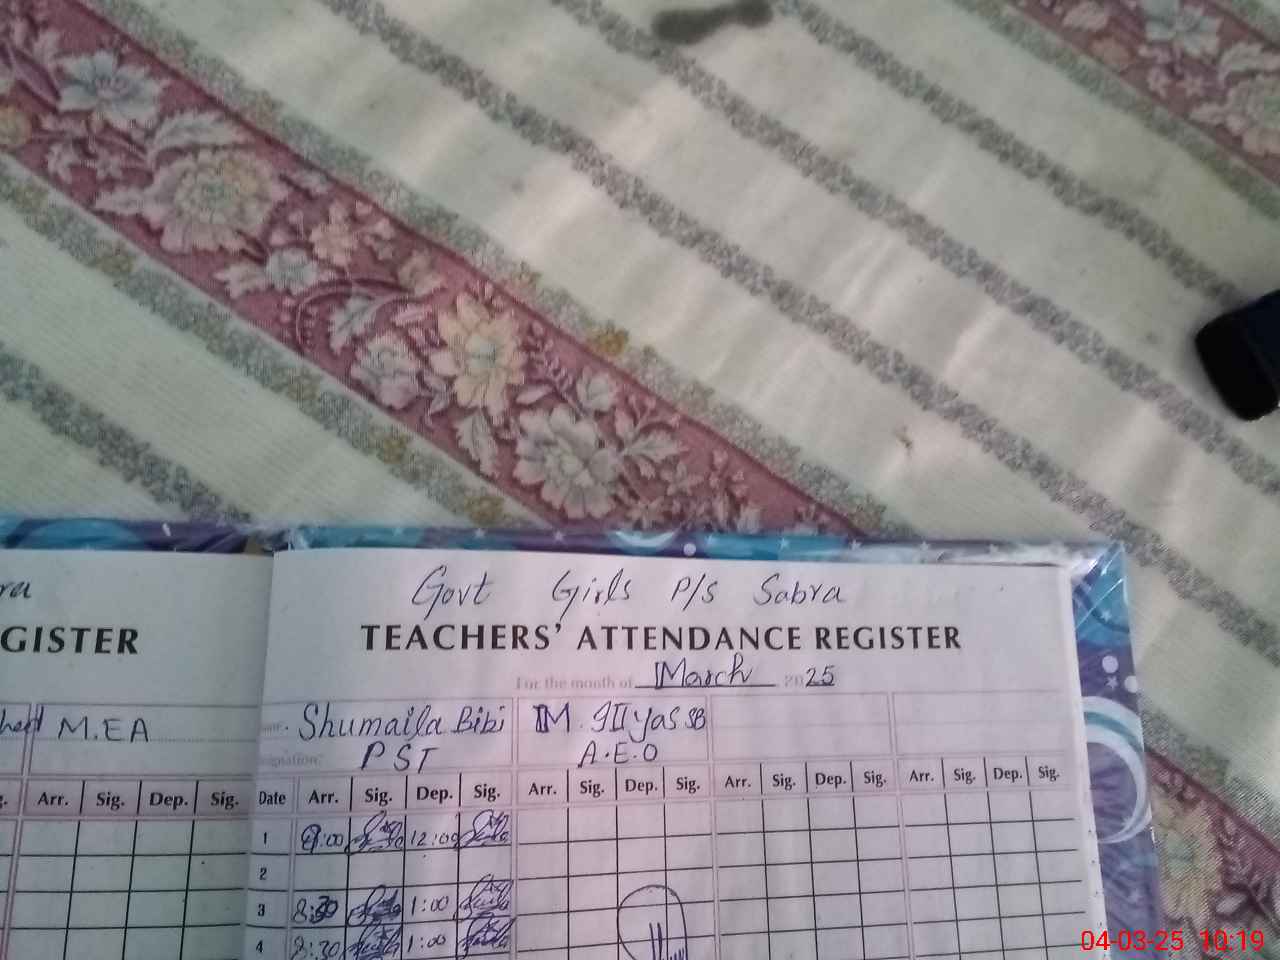 ra
GISTER
M.E.A
g. Arr. Sig. Dep. Sig.
Govt Girls P/S Sabra
TEACHERS' ATTENDANCE REGISTER
For the month of March 2025
Shumaila Bibi M. Illyas SB
PST A.E.O
Date Arr. Sig. Dep. Sig. Arr. Sig. Dep. Sig. Arr. Sig. Dep. Sig. Arr. Sig. Dep. Sig.
1 9:00 12:00
2
3 8:30 1:00
4 8:30 1:00
04-03-25 10:19